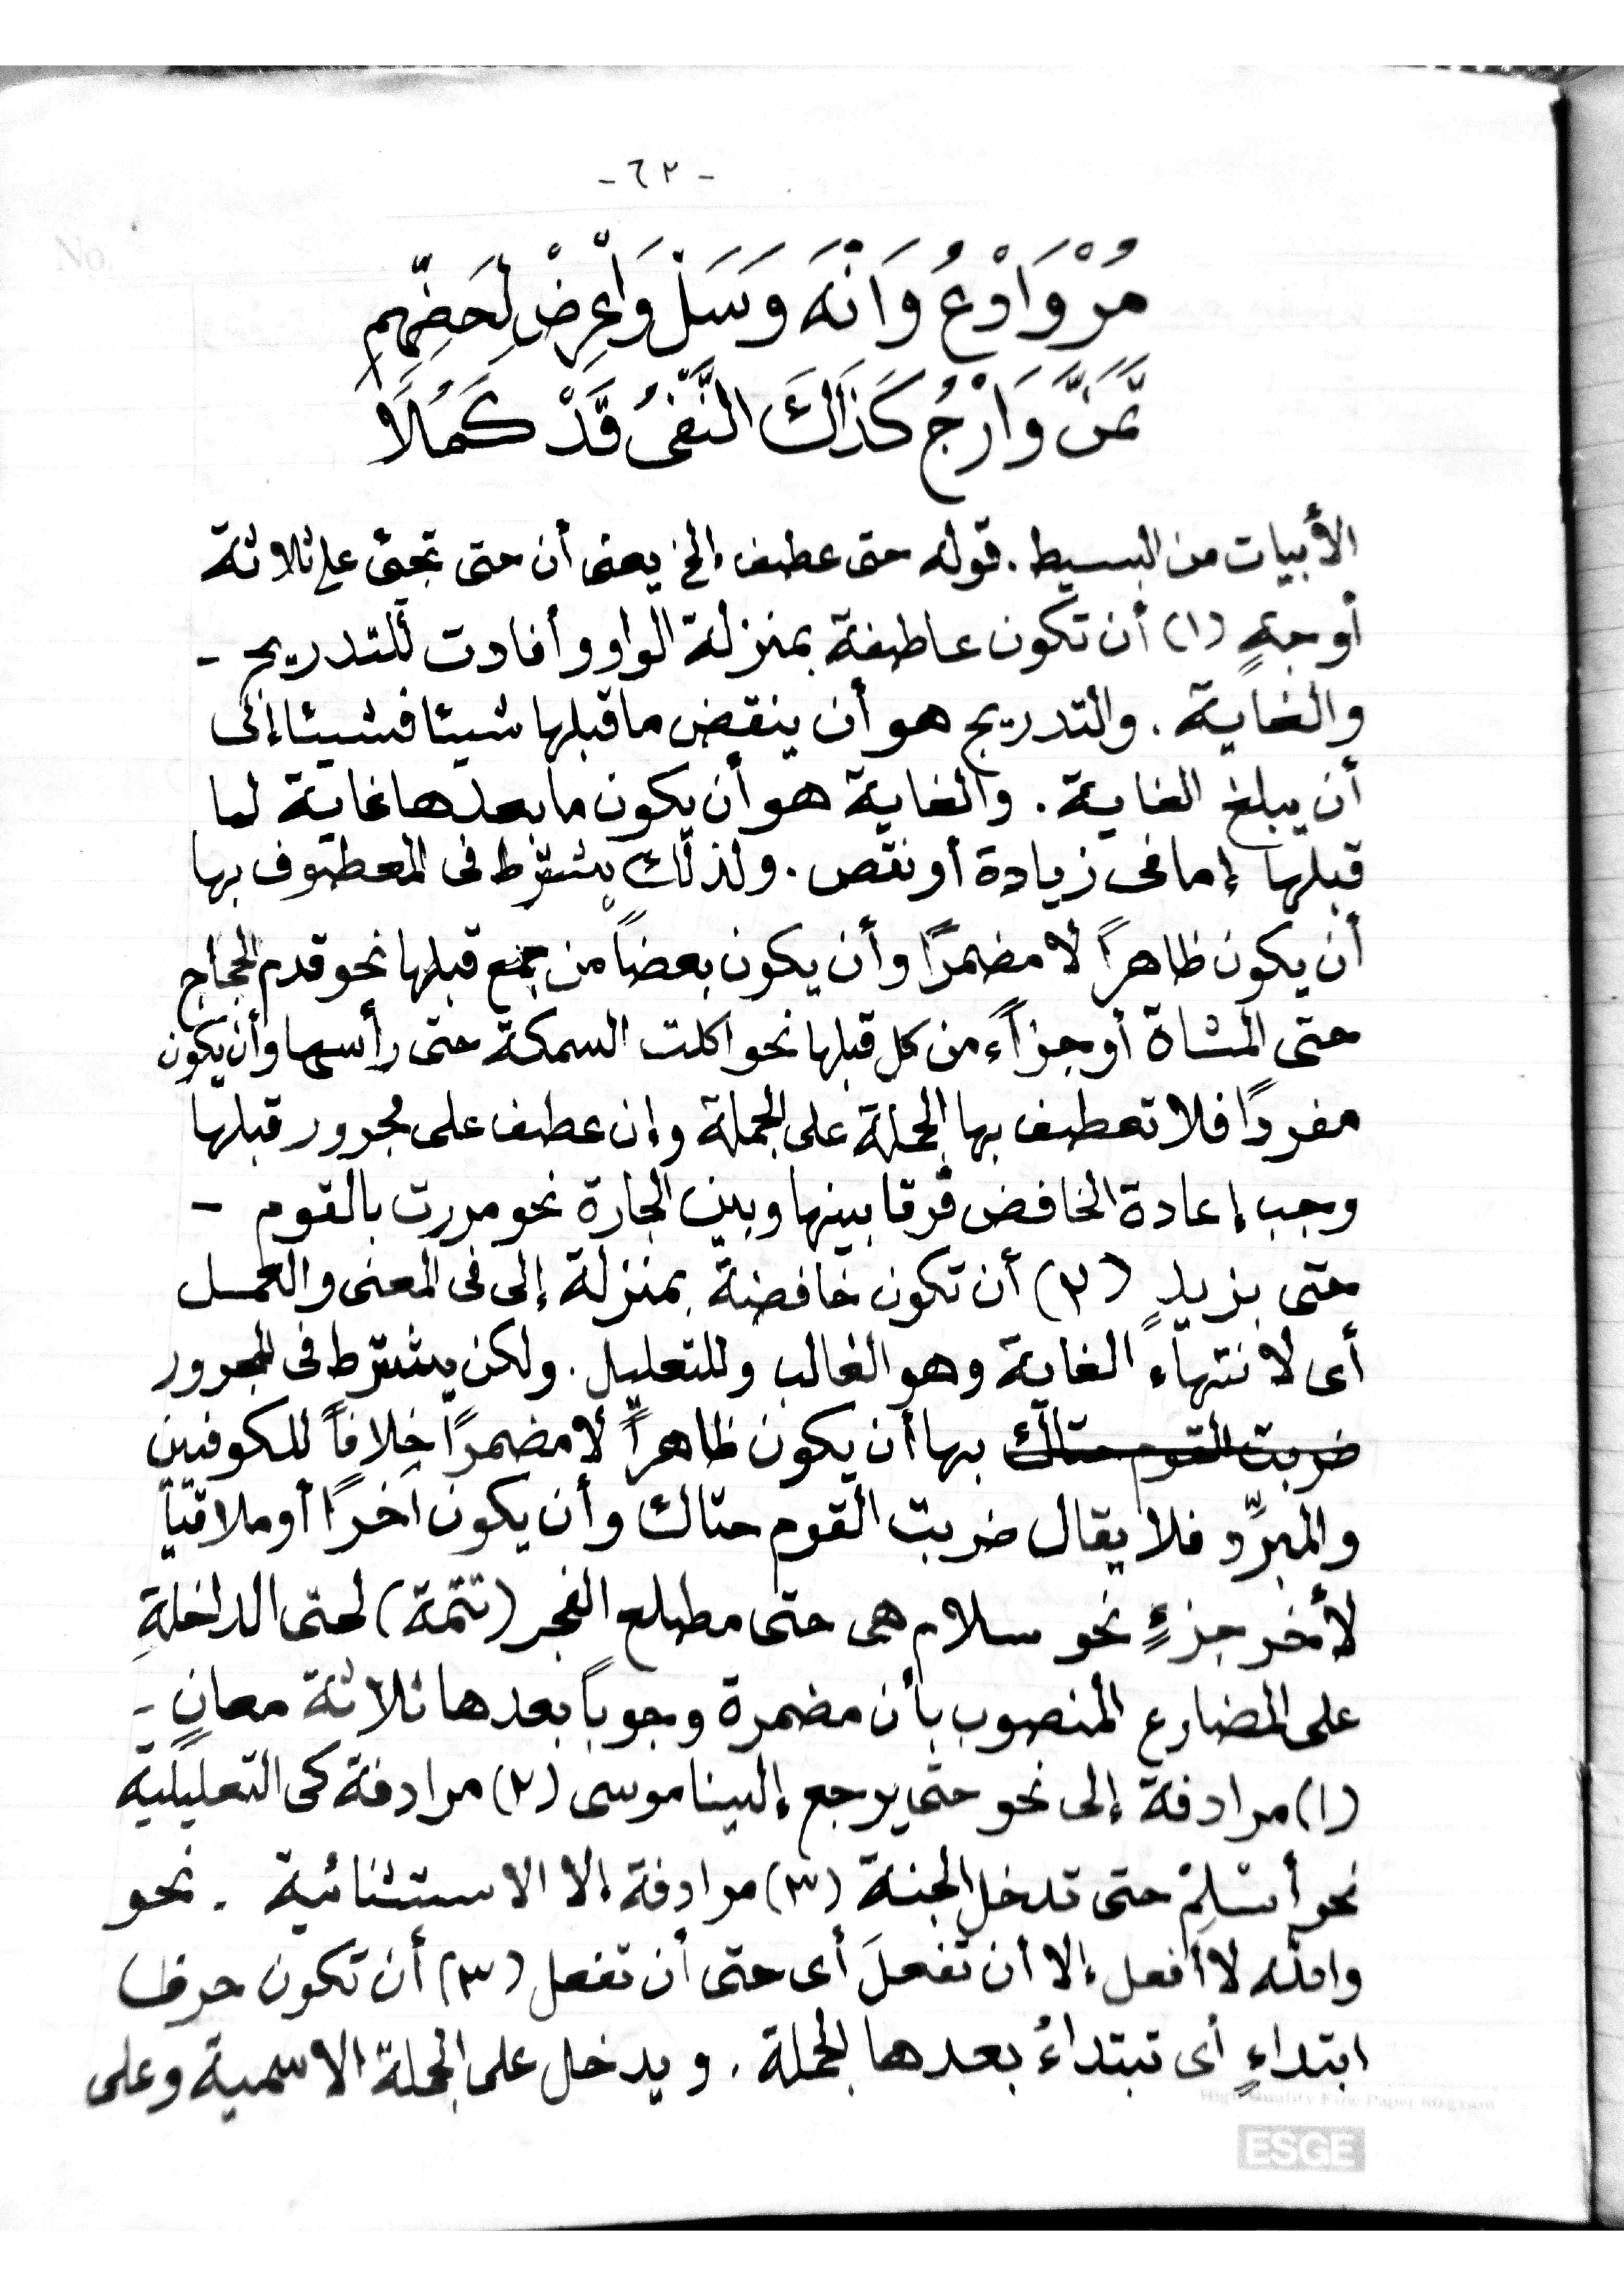 -٦٢-
مُرْ وَادْعُ وَانْهَ وَسَلْ وَاعْرِضْ لِحَضِّهِمِ
تَمَنَّ وَارْجُ كَذَاكَ النَّفْيُ قَدْ كَمُلَا
الأبيات من البسيط . قوله حتى عطف إلخ يعنى أن حتى تجئ على ثلاثة
أوجهٍ (١) أن تكون عاطفة بمنزلة الواو وأفادت للتدريج -
والغاية . والتدريج هو أن ينقض ما قبلها شيئا فشيئا إلى
أن يبلغ الغاية . والغاية هو أن يكون ما بعدها غاية لما
قبلها إما فى زيادة أو نقص . ولذلك يشترط فى المعطوف بها
أن يكون ظاهراً لا مضمراً وأن يكون بعضاً من جمع قبلها نحو قدم الحجاج
حتى المشاة أو جزاًء من كل قبلها نحو اكلت السمكة حتى رأسها وأن يكون
مفرداً فلا تعطف بها الجملة على الجملة وإن عطف على مجرور قبلها
وجب إعادة الخافض فرقا بينها وبين الجارة نحو مررت بالقوم -
حتى بزيدٍ (٢) أن تكون خافضة بمنزلة إلى فى المعنى والعمل
أى لانتهاء الغاية وهو الغالب وللتعليل . ولكن يشترط فى المجرور
ضربت القوم حتاك بها أن يكون ظاهراً لا مضمراً خلافاً للكوفيين
والمبرّد فلا يقال ضربت القوم حتاك وأن يكون آخراً أو ملاقياً
لأخر جزءٍ نحو سلام هى حتى مطلع الفجر (تتمة) لحتى الداخلةِ
على المضارع المنصوب بأن مضمرة وجوباً بعدها ثلاثة معانٍ -
(١) مرادفة إلى نحو حتى يرجع إلينا موسى (٢) مرادفة كى التعليلية
نحو أسْلِمْ حتى تدخل الجنة (٣) مرادفة إلا الاستثنائية . نحو
والله لا أفعل إلا أن تفعلَ أى حتى أن تفعل (٣) أن تكون حرف
ابتداءٍ أى تبتداءُ بعدها الجملة . ويدخل على الجملة الاسمية وعلى
High Quality Fine Paper 60 gram
ESGE
No.